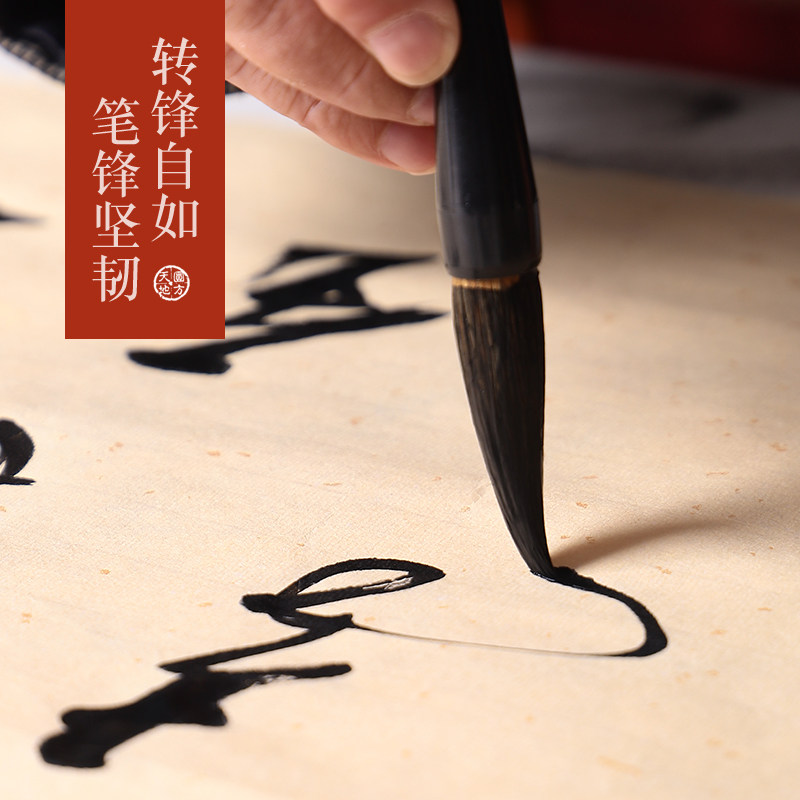 转锋自如
笔锋坚韧
天圓
地方